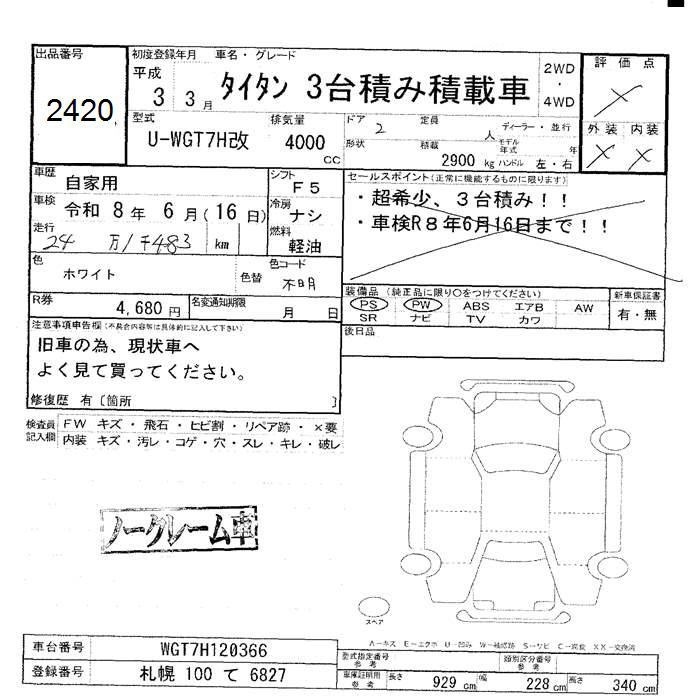 出品番号
2420
初度登録年月 車名・グレード
平成
3 3月 タイタン 3台積み積載車
2WD
・
4WD
評価点
×
外装 内装
× ×
型式
U-WGT7H改
排気量
4000
CC
ドア 2 定員 人
ディーラー・並行
形状 積載
2900 kg
モデル年式 年
ハンドル 左・右
車歴 自家用
車検 令和 8年 6月(16日)
走行 24万1千483 km
シフト F5
冷房 ナシ
燃料 軽油
セールスポイント(正常に機能するものに限ります)
・超希少、3台積み!!
・車検R8年6月16日まで!!
色 ホワイト 色替
色コード 不明
R券 4,680円 名変通知期限 月 日
装備品(純正品に限り○をつけてください)
PS PW ABS エアB AW
SR ナビ TV カワ
新車保証書
有・無
後日品
注意事項申告欄(不具合内容等は具体的に記入して下さい)
旧車の為、現状車へ
よく見て買ってください。
修復歴 有〔箇所 〕
検査員記入欄
FW キズ・飛石・ヒビ割・リペア跡・×要
内装 キズ・汚レ・コゲ・穴・スレ・キレ・破レ
ノークレーム車
スペア
A-キズ E-エクボ U-凹み W-補修跡 S-サビ C-腐食 XX-交換済
車台番号 WGT7H120366
登録番号 札幌 100 て 6827
型式指定番号 参考
類別区分番号 参考
車庫証明用 参考
長さ 929 cm 幅 228 cm 高さ 340 cm